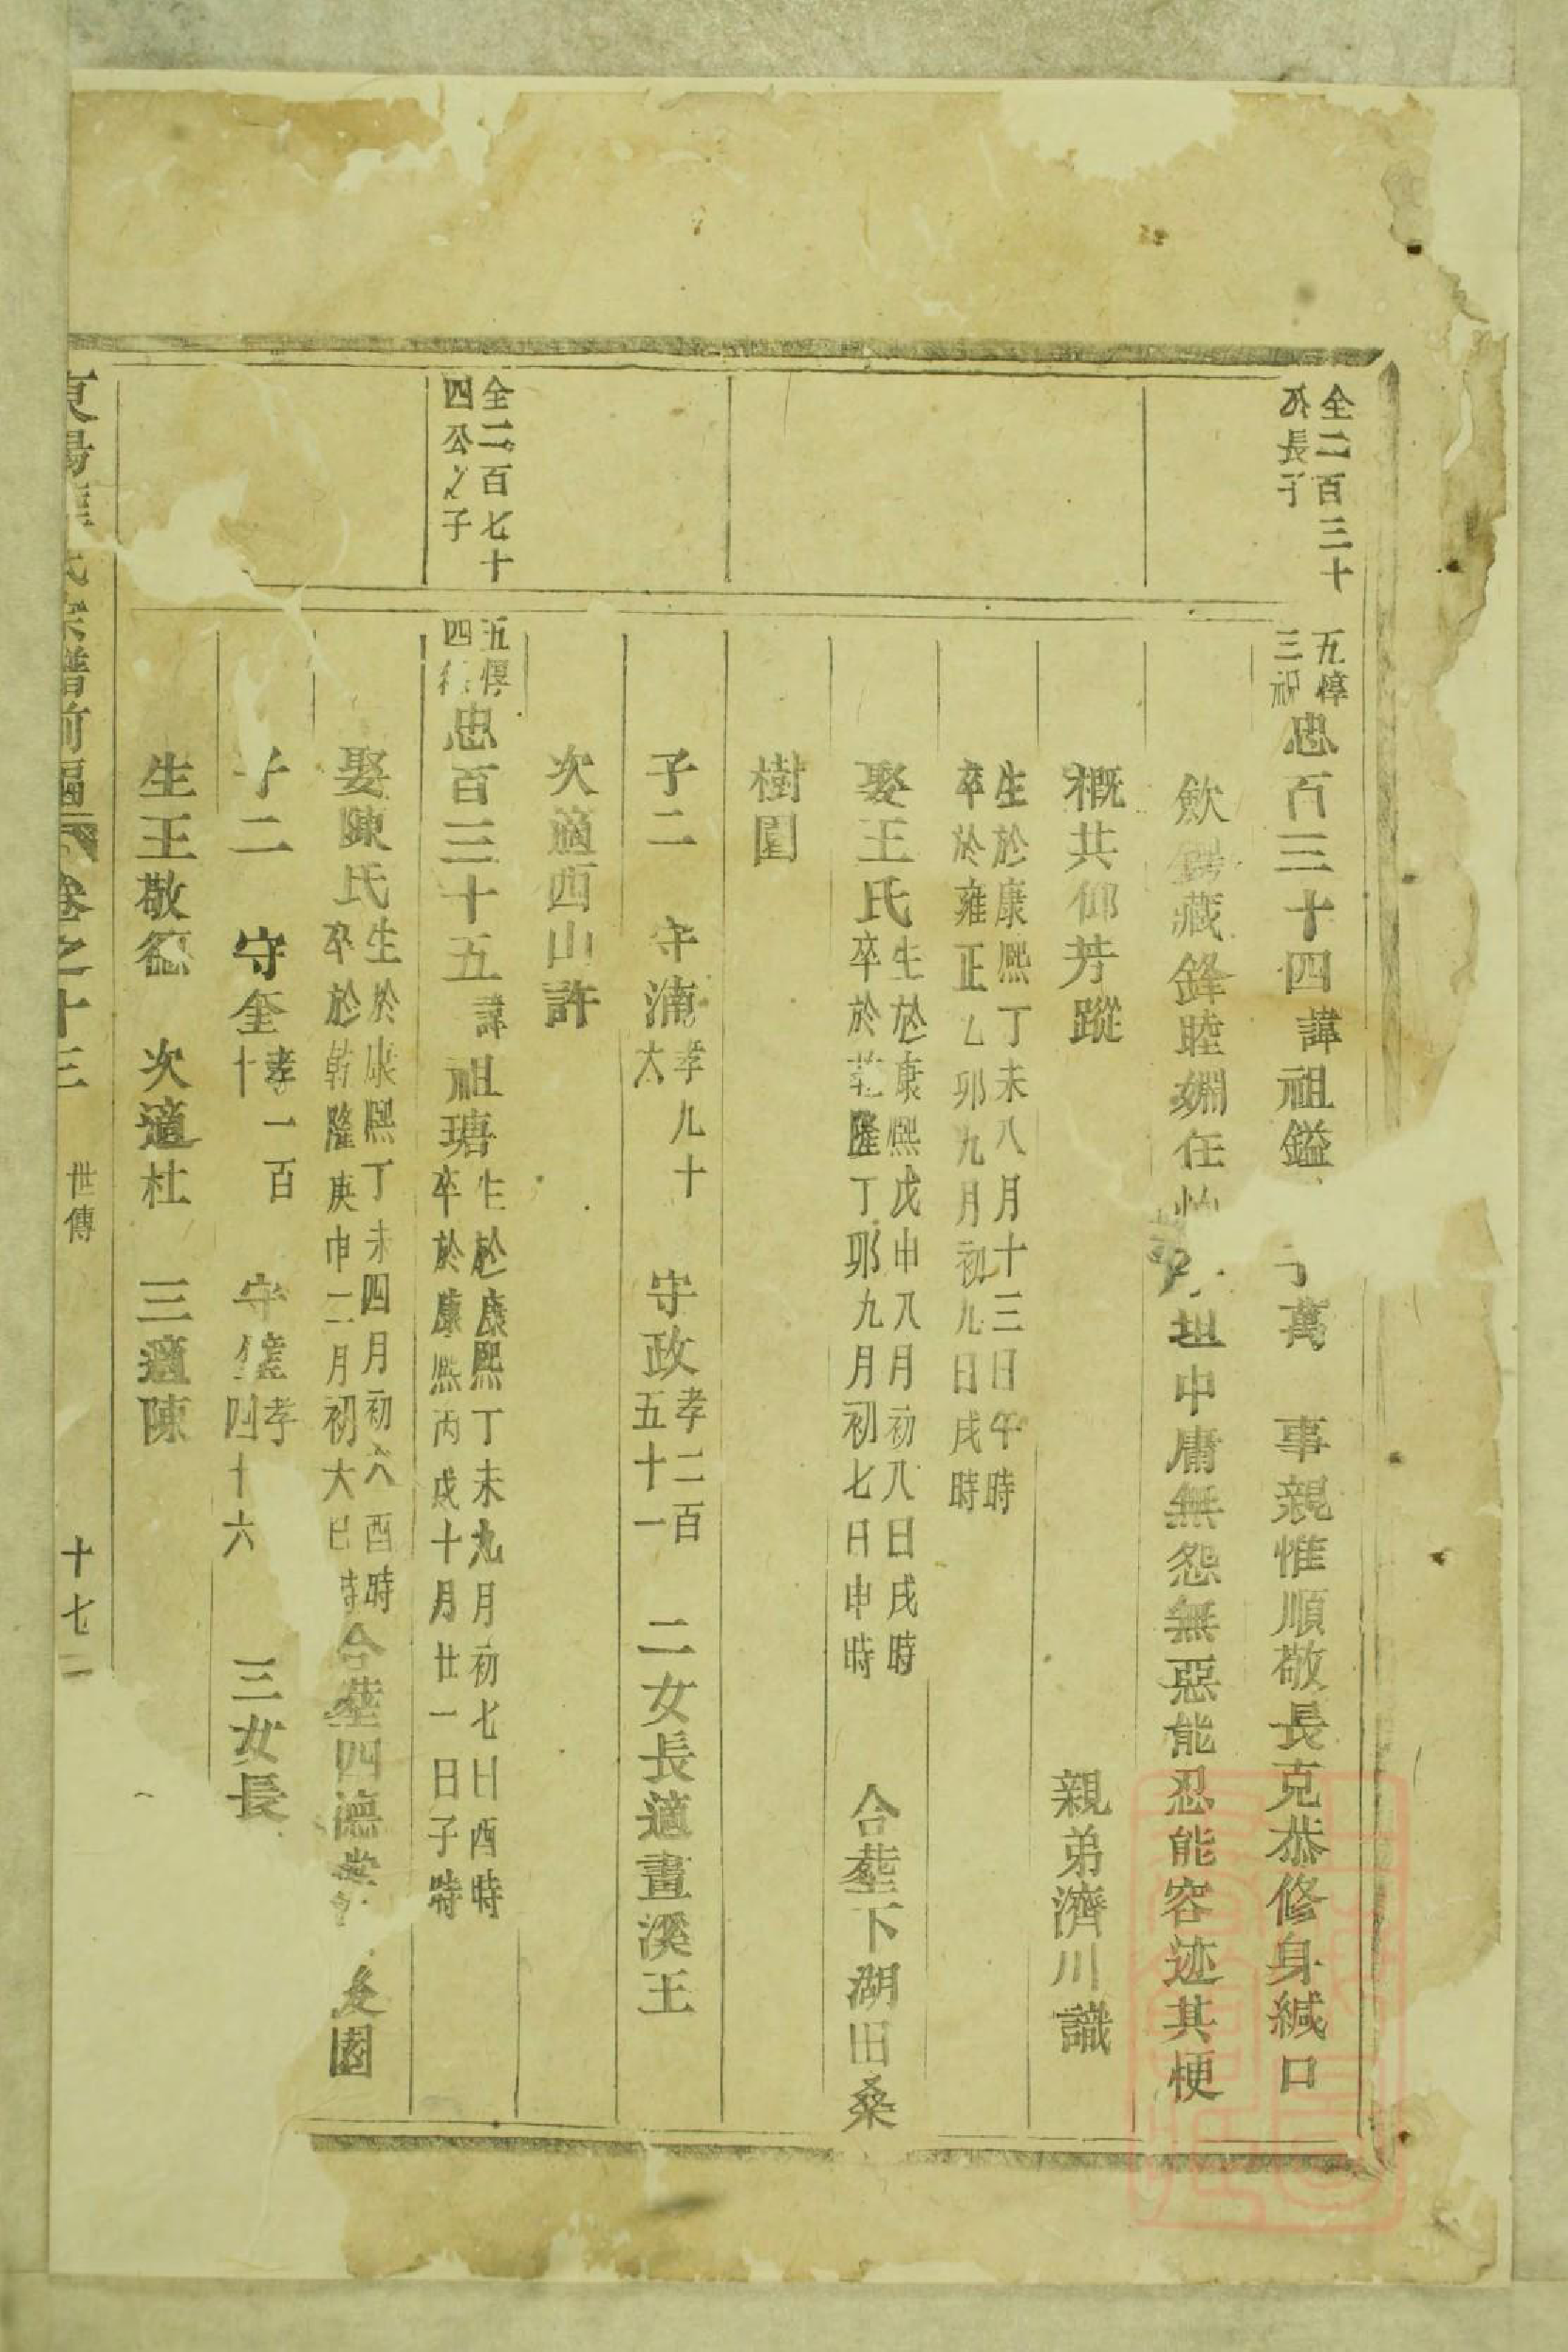 全二百三十
公長子
五惇
三祝
忠百三十四諱祖鎰 萬 事親惟順敬長克恭修身緘口
歛鍔藏鋒睦婣任 坦中庸無怨無惡能忍能容迹其梗
概共仰芳蹤 親弟濟川識
生於康熙丁未八月十三日午時
卒於雍正乙卯九月初九日戌時
娶王氏
生於康熙戊申八月初八日戌時
卒於乾隆丁卯九月初七日申時
合塟下湖田桑
樹園
子二 守湳
孝九十
六
守政
孝二百
五十一
二女長適畫溪王
次適西山許
全二百七十
四公之子
五惇
四
忠百三十五諱祖瑭
生於康熙丁未九月初七日酉時
卒於康熙丙戌十月廿一日子時
娶陳氏
生於康熙丁未四月初六酉時
卒於乾隆庚申二月初六巳時
合塟四德 園
子二 守奎
孝一百
十
守
孝
四十六
三女長
生王敬德 次適杜 三適陳
東陽 氏宗譜前編 卷之十三 世傳 十七